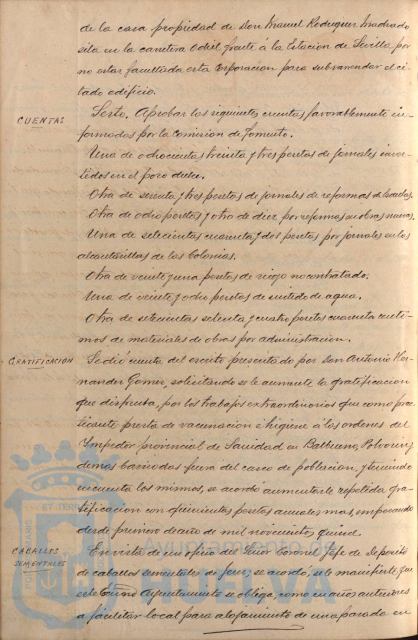 de la casa propiedad de Don Manuel Rodriguez Machado
sita en la carretera Odiel, frente á la Estacion de Sevilla por
no estar facultada esta Corporacion para subarrendar el ci-
tado edificio.
CUENTAS
Sexto. Aprobar las siguientes cuentas favorablemente in-
formadas por la Comision de Fomento.
Una de ochocientas treinta y tres pesetas de jornales inver-
tidos en el pozo dulce.
Otra de sesenta y tres pesetas de jornales de reformas
Otra de ocho pesetas y otra de diez por reformas en obras nuevas.
Una de setecientas cuarenta y dos pesetas por jornales en las
alcantarillas de las Colonias.
Otra de veinte y una pesetas de riego no contratado.
Una de veinte y ocho pesetas de surtido de agua.
Otra de setecientas setenta y cuatro pesetas cuarenta centi-
mos de materiales de obras por administracion.
GRATIFICACION
Se dió cuenta del escrito presentado por Don Antonio Her-
nandez Gomez, solicitando se le aumente la gratificacion
que disfruta, por los trabajos extraordinarios que como prac-
ticante presta de vacunacion é higiene á las ordenes del
Inspector provincial de Sanidad en Balbueno, Polvorin y
demas barriadas fuera del casco de poblacion, y teniendo
en cuenta los mismos, se acordó aumentarle repetida gra-
tificacion con quinientas pesetas anuales mas, empezando
desde primero de año de mil novecientos quince.
CABALLOS
SEMENTALES
En vista de un oficio del Señor Coronel Jefe de Deposito
de caballos sementales de Jerez se acordó, se le manifieste que
este Excmo Ayuntamiento se obliga, como en años anteriores
a facilitar local para alojamiento de una parada en